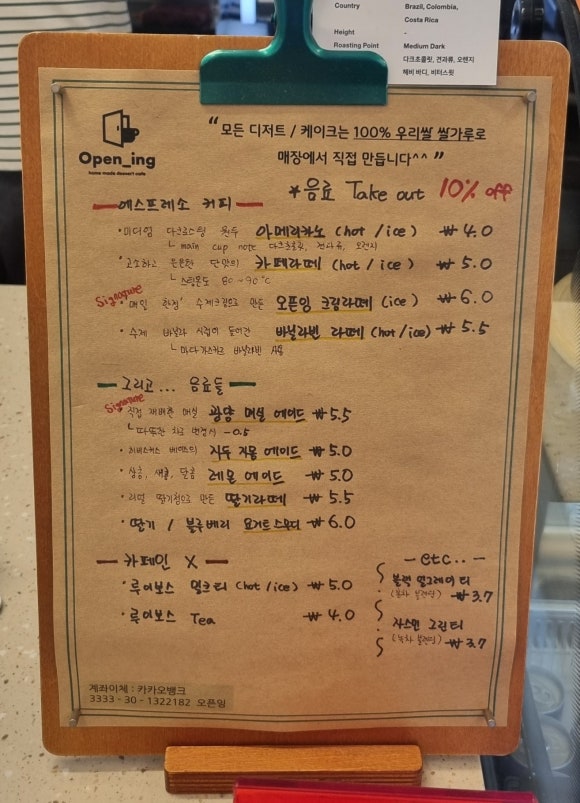 Country Brazil, Colombia,
Costa Rica
Height -
Roasting Point Medium Dark
다크초콜릿, 견과류, 오렌지
헤비 바디, 비터스윗
Open_ing
home made dessert cafe
"모든 디저트 / 케이크는 100% 우리쌀 쌀가루로
매장에서 직접 만듭니다^^"
*음료 Take out 10% off
에스프레소 커피
· 미디엄 다크로스팅 원두 아메리카노 (hot / ice) ₩ 4.0
└ main cup note 다크초콜릿, 견과류, 오렌지
· 고소하고 은은한 단맛의 카페라떼 (hot / ice) ₩ 5.0
└ 스팀온도 80~90℃
Signature
· 매일 한정 수제크림으로 만든 오픈잉 크림라떼 (ice) ₩ 6.0
· 수제 바닐라 시럽이 들어간 바닐라빈 라떼 (hot / ice) ₩ 5.5
└ 마다가스카르 바닐라빈 사용
그리고... 음료들
Signature
· 직접 재배한 매실 광양 매실 에이드 ₩ 5.5
└ 따뜻한 차로 변경시 -0.5
· 히비스커스 베이스의 자두 자몽 에이드 ₩ 5.0
· 상큼, 새콤, 달콤 레몬 에이드 ₩ 5.0
· 리얼 딸기청으로 만든 딸기라떼 ₩ 5.5
· 딸기 / 블루베리 요거트스무디 ₩ 6.0
카페인 X
· 루이보스 밀크티 (hot / ice) ₩ 5.0
· 루이보스 Tea ₩ 4.0
- etc.. -
블랙 얼그레이 티
(홍차 블렌딩) ₩ 3.7
자스민 그린티
(녹차 블렌딩) ₩ 3.7
계좌이체 : 카카오뱅크
3333 - 30 - 1322182 오픈잉